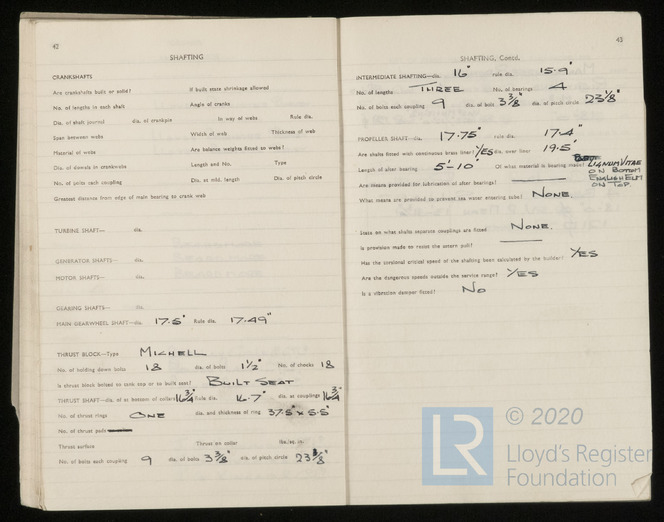 42
SHAFTING
CRANKSHAFTS
Are crankshafts built or solid? If built state shrinkage allowed
No. of lengths in each shaft Angle of cranks
Dia. of shaft journal dia. of crankpin In way of webs Rule dia.
Span between webs Width of web Thickness of web
Material of webs Are balance weights fitted to webs?
Dia. of dowels in crankwebs Length and No. Type
No. of bolts each coupling Dia. at mid. length Dia. of pitch circle
Greatest distance from edge of main bearing to crank web
TURBINE SHAFT— dia.
GENERATOR SHAFTS— dia.
MOTOR SHAFTS— dia.
GEARING SHAFTS— dia.
MAIN GEARWHEEL SHAFT—dia. 17.5" Rule dia. 17.49"
THRUST BLOCK—Type MICHELL
No. of holding down bolts 18 dia. of bolts 1½" No. of chocks 18
Is thrust block bolted to tank top or to built seat? BUILT SEAT
THRUST SHAFT—dia. at bottom of collars 16¾" Rule dia. 16.7" dia. at couplings 16¾"
No. of thrust rings ONE dia. and thickness of ring 37.5" x 5.5"
No. of thrust pads
Thrust surface Thrust on collar lbs./sq. in.
No. of bolts each coupling 9 dia. of bolts 3⅜" dia. of pitch circle 23⅛"
43
SHAFTING, Contd.
INTERMEDIATE SHAFTING—dia. 16" rule dia. 15.9"
No. of lengths THREE No. of bearings 4
No. of bolts each coupling 9 dia. of bolt 3⅜" dia. of pitch circle 23⅛"
PROPELLER SHAFT—dia. 17.75" rule dia. 17.4"
Are shafts fitted with continuous brass liner? YES dia. over liner 19.5"
Length of after bearing 5'-10" Of what material is bearing made? LIGNUM VITAE
ON BOTTOM
ENGLISH ELM
ON TOP.
Are means provided for lubrication of after bearings?
What means are provided to prevent sea water entering tube? NONE.
State on what shafts separate couplings are fitted NONE.
Is provision made to resist the astern pull?
Has the torsional critical speed of the shafting been calculated by the builder? YES
Are the dangerous speeds outside the service range? YES
Is a vibration damper fitted? NO
LR
© 2020
Lloyd's Register
Foundation